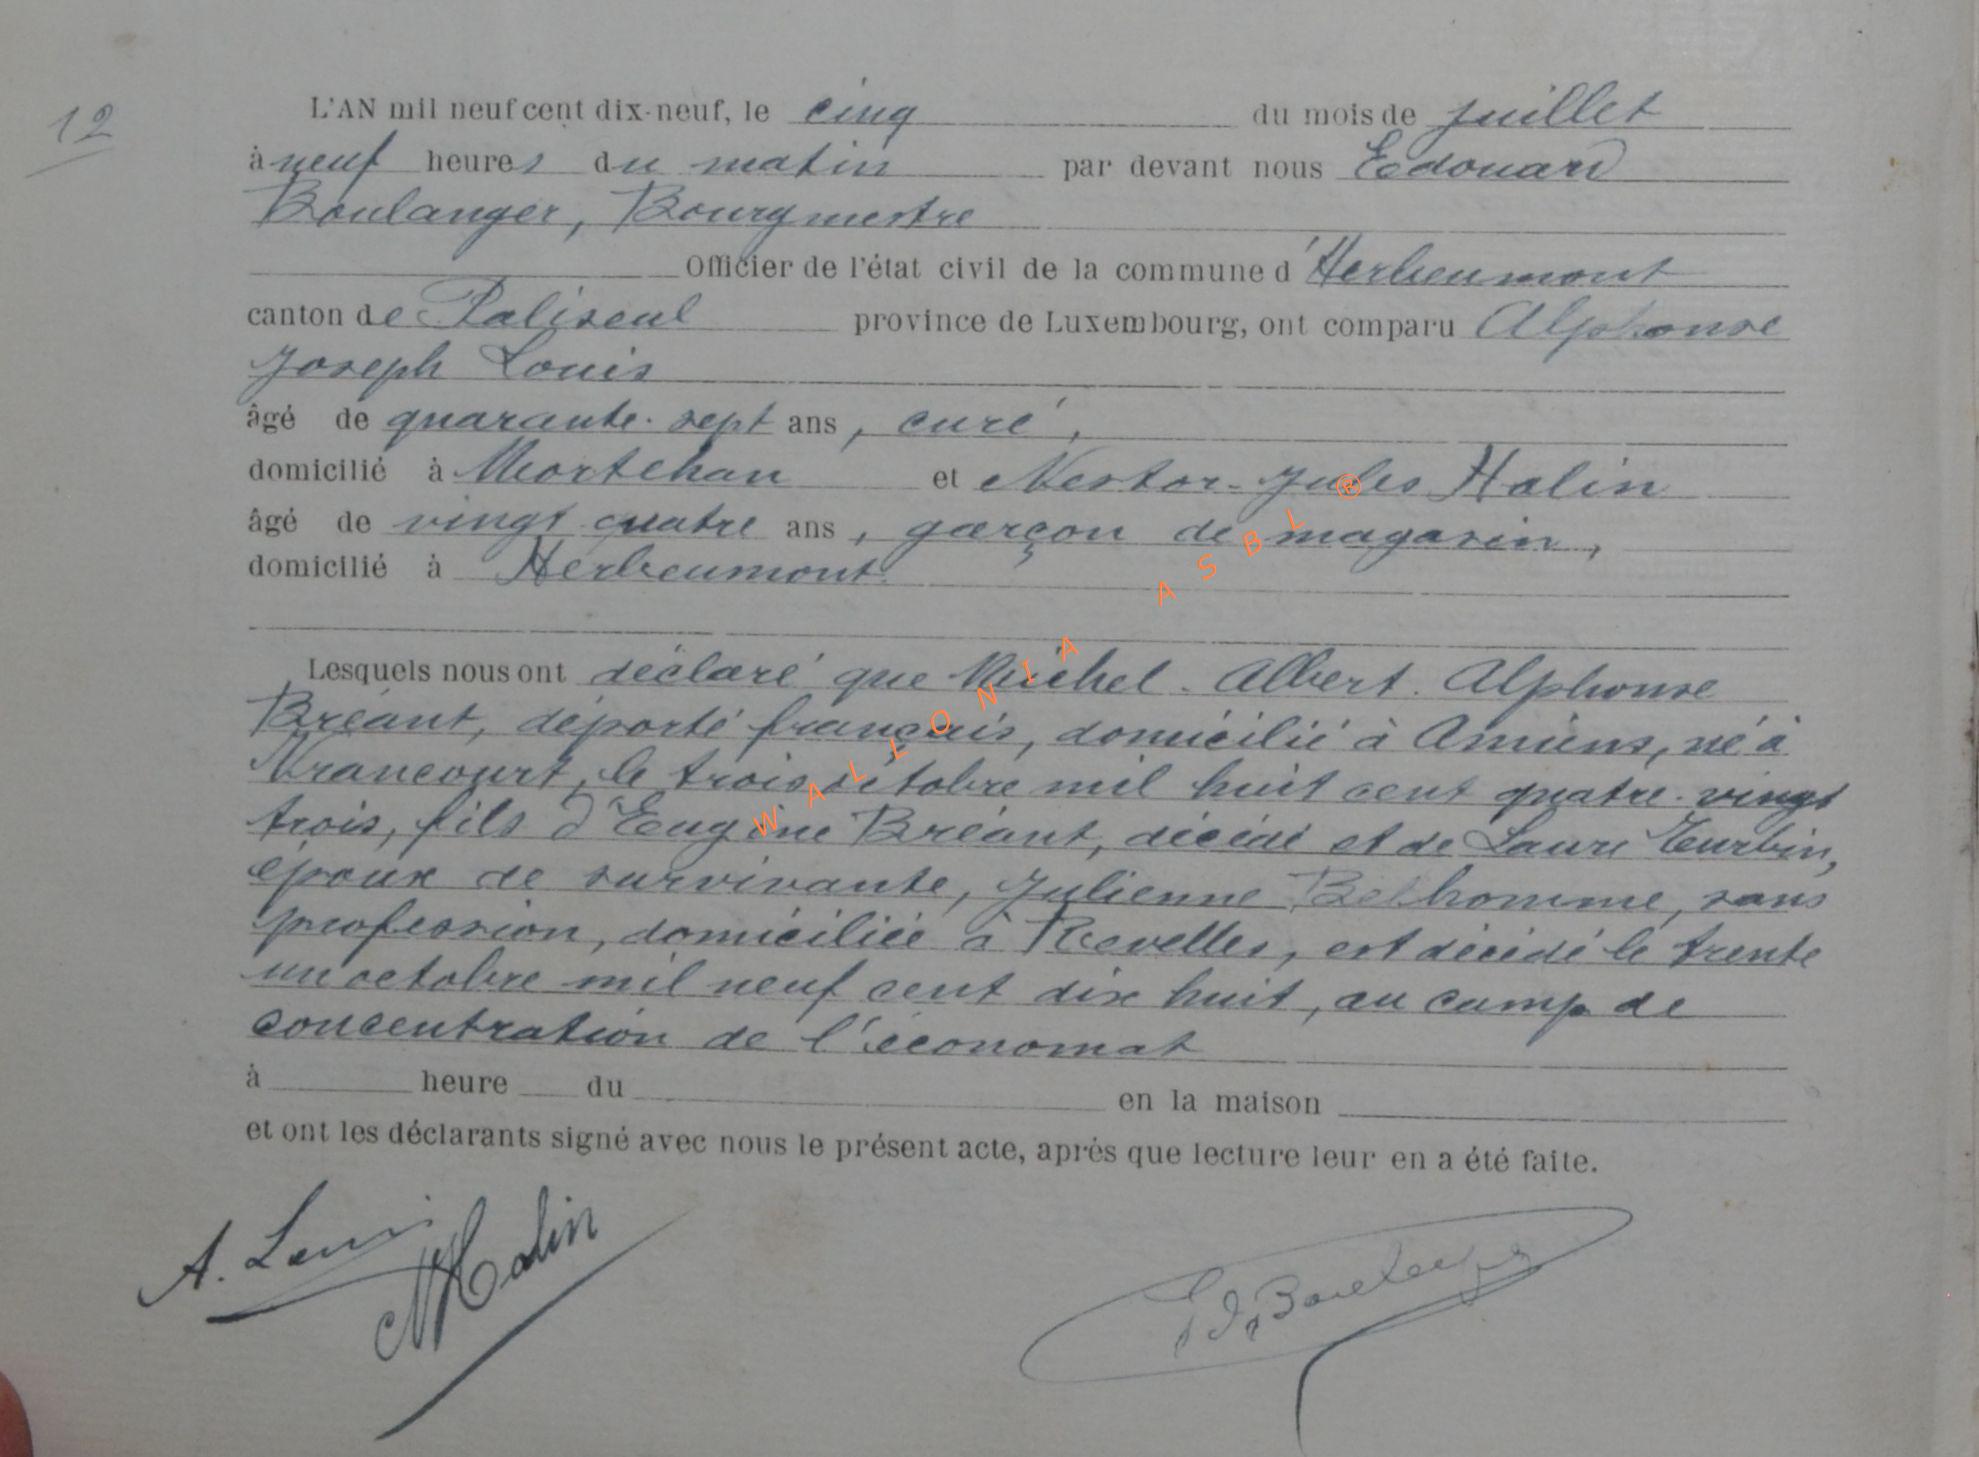 12
L'AN mil neuf cent dix-neuf, le cinq du mois de juillet
à neuf heures du matin par devant nous Edouard
Boulanger, Bourgmestre
Officier de l'état civil de la commune d'Herbeumont
canton de Paliseul province de Luxembourg, ont comparu Alphonse
Joseph Louis
âgé de quarante-sept ans, curé,
domicilié à Mortehan et Nestor-Jules Halin
âgé de vingt quatre ans, garçon de magasin,
domicilié à Herbeumont.
Lesquels nous ont déclaré que Michel-Albert-Alphonse
Bréant, déporté français, domicilié à Amiens, né à
Vrancourt, le trois octobre mil huit cent quatre-vingt
trois, fils d'Eugène Bréant, décédé et de Laure Turbin,
époux de survivante, Julienne Belhomme, sans
profession, domiciliée à Revelles, est décédé le trente
un octobre mil neuf cent dix huit, au camp de
concentration de l'économat
à heure du en la maison
et ont les déclarants signé avec nous le présent acte, après que lecture leur en a été faite.
A. Louis NHalin Ed. Boulanger
WALLONIA ASBL ®